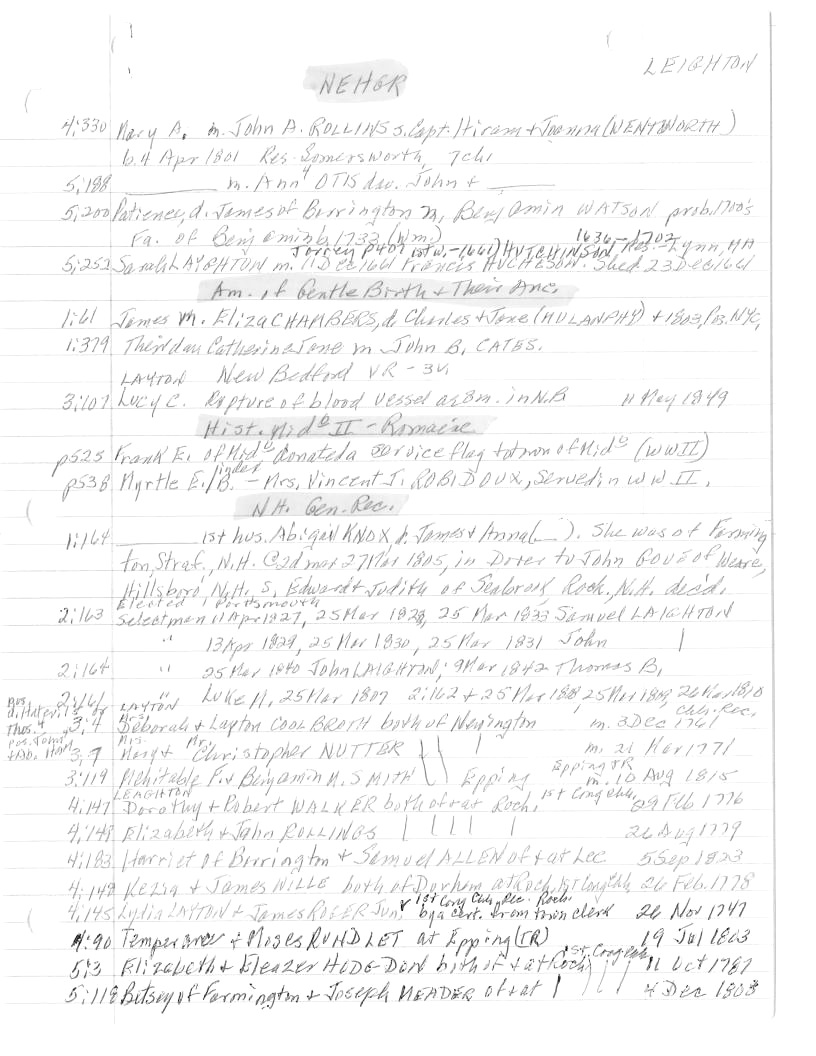 LEIGHTON
NEHGR
4:330 Mary A. m. John A. ROLLINS s. Capt. Hiram + Joanna (WENTWORTH)
b. 4 Apr 1801 Res. Somersworth, 7 ch.
5:188 ________ m. Ann OTIS dau. John + ______
5:200 Patience, d. James of Barrington m. Benjamin WATSON prob. 1700's
Fa. of Benjamin b. 1733 (Wm.)
Torrey p407 1636-1702
(-1661) HUTCHINSON, Res. Lynn, MA
5:252 Sarah LAYGHTON m. 11 Dec 1661 Francis HUCHESON. She d. 23 Dec 1661
Am. of Gentle Birth + Their Anc.
1:61 James m. Eliza CHAMBERS, d. Charles + Jane (MULANPHY) + 1803, NYC,
1:379 Their dau Catherine Jane m John B. CATES.
LAYTON New Bedford VR - 3V.
3:107 Lucy C. Rupture of blood vessel ae 8m. in N.B 11 May 1849
Hist. Mid II - Romaine
p525 Frank E. of Mid donated a service flag to town of Mid (WWII)
p538 Myrtle E./B. - Mrs. Vincent J. ROBIDOUX, Served in WW II.
N.H. Gen. Rec.
1:164 ________ 1st hus. Abigail KNOX d. James + Anna (__). She was of Farming
ton, Straf., N.H. @ 2d mar 27 Mar 1805, in Dover to John GOVE of Weare,
Hillsboro, N.H. s. Edward + Judith of Seabrook, Rock. N.H. dec'd.
Elected Portsmouth
2:163 Selectmen 11 Apr 1827, 25 Mar 1828, 25 Mar 1833 Samuel LAIGHTON
" 13 Apr 1829, 25 Mar 1830, 25 Mar 1831 John
2:164 " 25 Mar 1840 John LAIGHTON; 9 Mar 1842 Thomas B.
2:161 " Luke M. 25 Mar 1807 2:162 + 25 Mar 1808 25 Mar 1809, 26 Mar 1810
LAYTON Ch. Rec.
3:4 Mrs Deborah + Layton COOLBROTH both of Newington m. 3 Dec 1761
3:7 Mrs. Mary + Mr. Christopher NUTTER m. 21 Mar 1771
3:119 Mehitable P. + Benjamin M. SMITH Epping Epping TR m. 10 Aug 1815
LEAGHTON
4:147 Dorothy + Robert WALKER both of + at Roch. 1st Cong Chh. 29 Feb 1776
4:149 Elizabeth + John ROLLINGS 26 Aug 1779
4:183 Harriet of Barrington + Samuel ALLEN of + at Lee 5 Sep 1823
4:148 Kezia + James WILLE both of Durham at Roch. 1st Cong Chh 26 Feb. 1778
1st Cong Chh. Rec. Roch.
4:145 Lydia LAYTON + James ROGER Jun. by a cert. from town clerk 26 Nov 1747
4:90 Temperance + Moses RUNDLET at Epping (TR) 19 Jul 1803
5:3 Elizabeth + Eleazer HODGDON both of + at Roch 1st Cong Chh 11 Oct 1787
5:118 Betsey of Farmington + Joseph MEADER of + at 4 Dec 1803